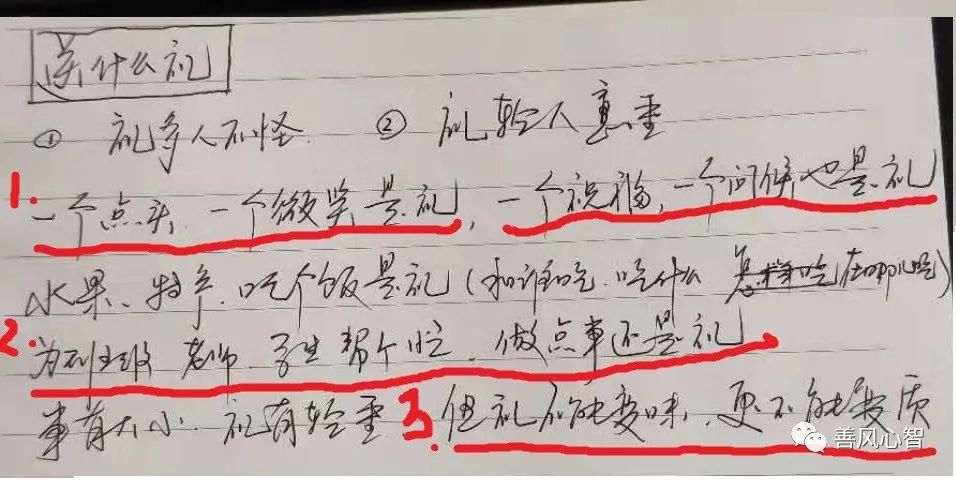 送什么礼
① 礼多人不怪 ② 礼轻人意重
1. 一个点头、一个微笑是礼，一个祝福，一个问候也是礼
水果、特产、吃个饭是礼（和谁吃、吃什么 在哪儿吃）
2. 老师、学生帮个忙、做点事还是礼
事有大小、礼有轻重 3. 但礼不能变味，更不能变质
善风心智